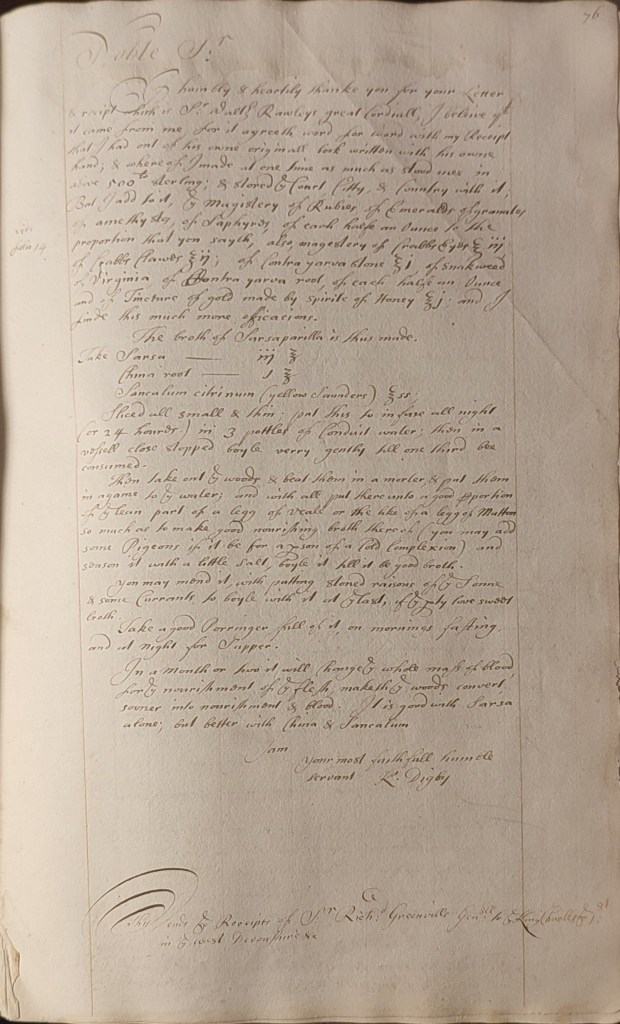 76
Noble Sr
I humbly & heartily thanke you for your Letter
& receipt which is Sr Walth Rawleys great Cordiall, I beleive yt
it came from me, for it agreeth word for word with my Receipt
that I had out of his owne originall book written with his owne
hand; & where of I made at one time as much as stood mee in
above 500ts sterling; & stored ye Court Citty, & Country with it,
But I add to it, ye Magistery of Rubies, of Emeralds of granates
of amethysts, of Saphyres, of each halfe an Ounce to the
proportion that you sayth, also, magestery of Crabbs Eyes ℥ iij
of Crabbs Clawes ℥ ij; of Contra yarva stone ℥ j of snakweed
of Virginia of Contra yarva root, of each halfe an Ounce
and of Tincture of gold made by spirite of Honey ℥ j: and I
finde this much more efficacious.
The broth of Sarsaparilla is thus made.
Take Sarsa —— iij ℥
China root —— j ℥
Santalum citrinum (yellow Saunders) ℥ ss;
Sliced all small & thin; put this to infuse all night
(or 24 houres) in 3 pottles of Conduit water; then in a
vessell close stopped boyle verry gently till one third bee
consumed.
Then take out ye woods & beat them in a morter, & put them
in againe to ye water; and with all put thereunto a good pportion
of ye lean part of a legg of Veale or the like of a legg of Mutton
so much as to make good nourishing broth thereof (you may add
some Pigeons if it be for a pson of a Cold Complexion) and
season it with a little salt, boyle it till it be good broth.
you may mend it, with putting stoned raisons of ye Sonne
& some Currants, to boyle with it at ye last, if ye pty love sweet
broth.
Take a good Porringer full of it, on mornings fasting
and at night for Supper.
In a month or two it will Change ye whole mass of blood,
for ye nourishment of ye flesh, maketh ye woods convert
sooner into nourishment & blood. It is good with Sarsa
alone; but better with China & Santalum
I am
your most faithfull humble
servant K: Digby
Thus ends ye Receipts of Sr Richd Greenvile Genll to ye King Charles ye 1st
in ye west Devonshire &c